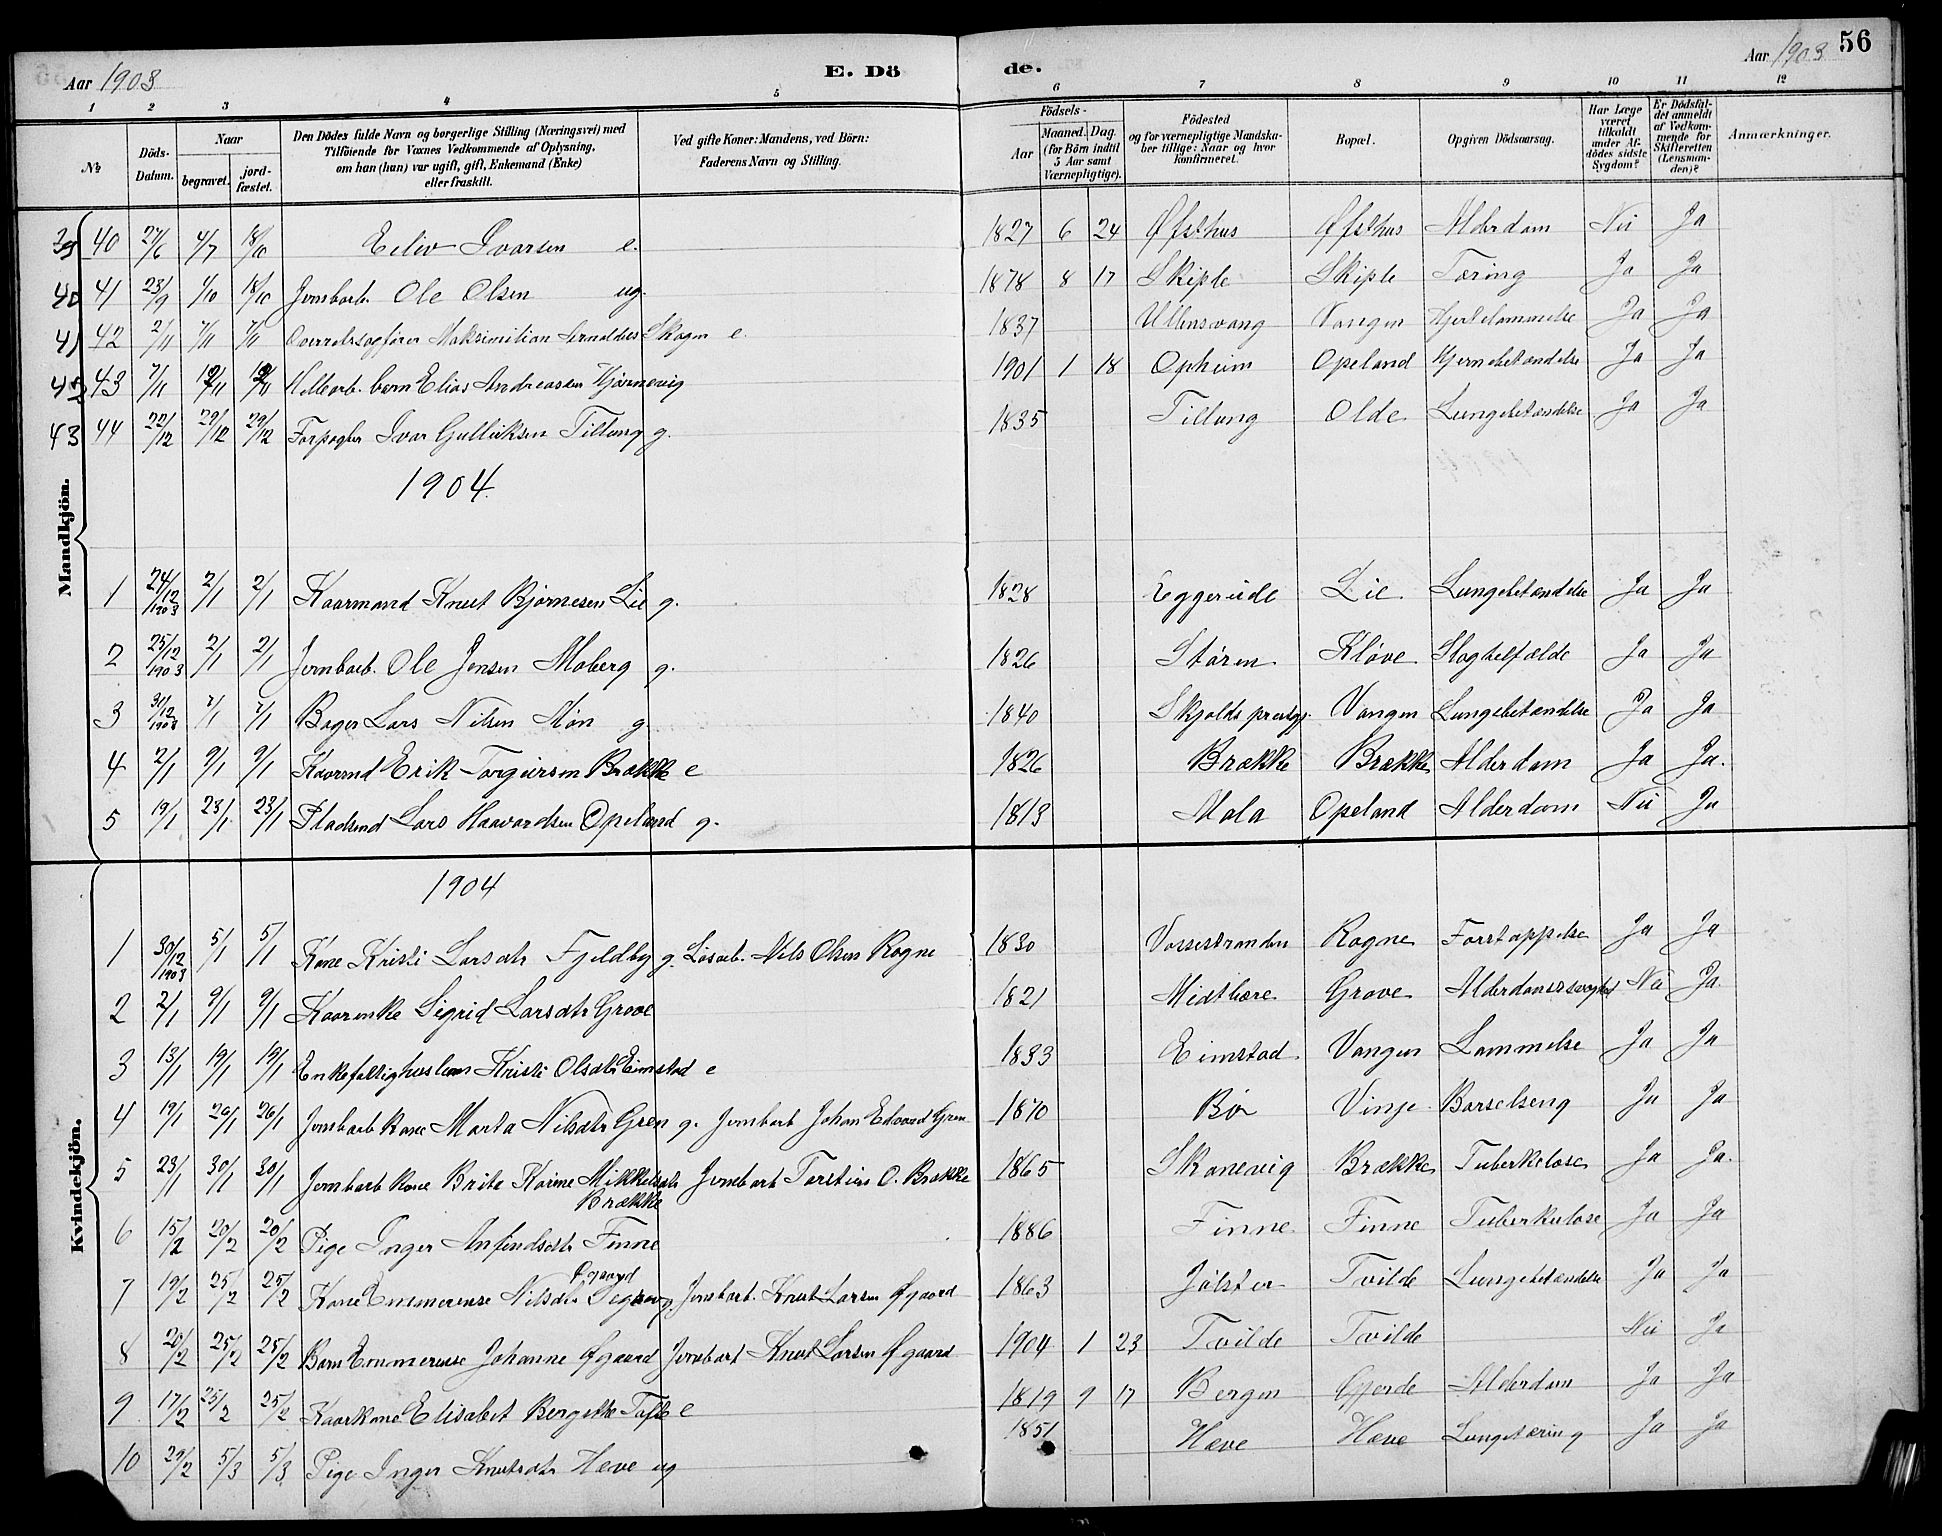 56
Aar 1903
E. Dö
de.
Aar 1903
1 2 3 4 5 6 7 8 9 10 11 12
№
Döds-Datum.
Naar
begravet.
jord-fæstet.
Den Dödes fulde Navn og borgerlige Stilling (Næringsvei) med
Tilföiende for Voxnes Vedkommende af Oplysning,
om han (hun) var ugift, gift, Enkemand (Enke)
eller fraskilt.
Ved gifte Koner: Mandens, ved Börn:
Faderens Navn og Stilling.
Födsels-
Aar
Maaned. Dag.
(for Börn indtil
5 Aar samt
Værnepligtige).
Födested
og for værnepligtige Mandska-
ber tillige: Naar og hvor
konfirmeret.
Bopæl.
Opgiven Dödsaarsag.
Har Læge
været
tilkaldt
under Af-
dödes sidste
Sygdom?
Er Dödsfal-
det anmeldt
af Vedkom-
mende for
Skifteretten
(Lensman-
den)?
Anmærkninger.
Mandkjön.
39 40 27/6 4/7 18/10 Eiliv Ivarsen e. 1827 6 24 Øfsthus Øfsthus Alderdom Nei Ja
40 41 23/9 1/10 18/10 Jernbarb. Ole Olsen ug. 1878 8 17 Skiple Skiple Tæring Ja Ja
41 42 2/11 7/11 7/11 Overretssagfører Maksimilian Arnoldus Skagen e. 1837 Ullensvang Vangen Hjertelammelse Ja Ja
42 43 7/11 12/11 12/11 Hellearb. barn Elias Andreassen Hjørnevig 1901 1 18 Opheim Opeland Hjernebetændelse Ja Ja
43 44 22/12 29/12 29/12 Forpagter Ivar Gulleiksen Tillung g. 1835 Tillung Olde Lungebetændelse Ja Ja
1904.
1 24/12 1903 2/1 2/1 Kaarmand Knut Bjørnesen Lie g. 1828 Eggereide Lie Lungebetændelse Ja Ja
2 25/12 1903 2/1 2/1 Jernbarb. Ole Jensen Moberg g. 1826 Støren Kløve Slagtilfælde Ja Ja
3 31/12 1903 7/1 7/1 Bager Lars Nilsen Møn g. 1840 Skjolds prestgj. Vangen Lungebetændelse Ja Ja
4 2/1 9/1 9/1 Kaarmd Erik Torgeirsen Brække e 1826 Brække Brække Alderdom Ja Ja.
5 19/1 23/1 23/1 Pladsmd Lars Haavardsen Opeland g. 1813 Mala Opeland Alderdom Nei Ja
Kvindekjön.
1904
1 30/12 1903 5/1 5/1 Kone Kristi Larsdtr Fjeldby g. Løsarb. Nils Olsen Rogne 1830 Vossestranden Rogne Forstoppelse Ja Ja
2 2/1 9/1 9/1 Kaarenke Sigrid Larsdtr Grove 1821 Midtbære Grove Alderdomssvaghed Nei Ja
3 13/1 19/1 19/1 Enkefattighuslem Kristi Olsdtr Eimstad e 1833 Eimstad Vangen Lammelse Ja Ja
4 19/1 26/1 26/1 Jernbarb kone Marta Nilsdtr Gren g. Jernbarb Johan Edvard Gren 1870 Bø Vinje Barselseng Ja Ja
5 23/1 30/1 30/1 Jernbarb kone Brite Karine Mikkelsdtr Jernbarb Torstein O. Brække 1865 Skonevig Brække Tuberkelose Ja Ja.
Brække
6 15/2 20/2 20/2 Pige Inger Anfindsdtr Finne 1886 Finne Finne Tuberkulose Ja Ja
Øgaard
7 19/2 25/2 25/2 Kone Emmerense Nilsdtr g. Jernbarb. Knut Larsen Øgaard 1863 Jølster Tvilde Lungebetændelse Ja Ja
8 20/2 25/2 25/2 Barn Emmerense Johanne Øgaard Jernbarb Knut Larsen Øgaard 1904 1 23 Tvilde Tvilde Nei Ja
9 17/2 25/2 25/2 Kaarkone Elisabet Bergitte Tafte e 1819 9 17 Bergen Gjerde Alderdom Ja Ja
10 29/2 5/3 5/3 Pige Inger Knutsdtr Hæve ug 1851 Hæve Hæve Lungetæring Ja Ja